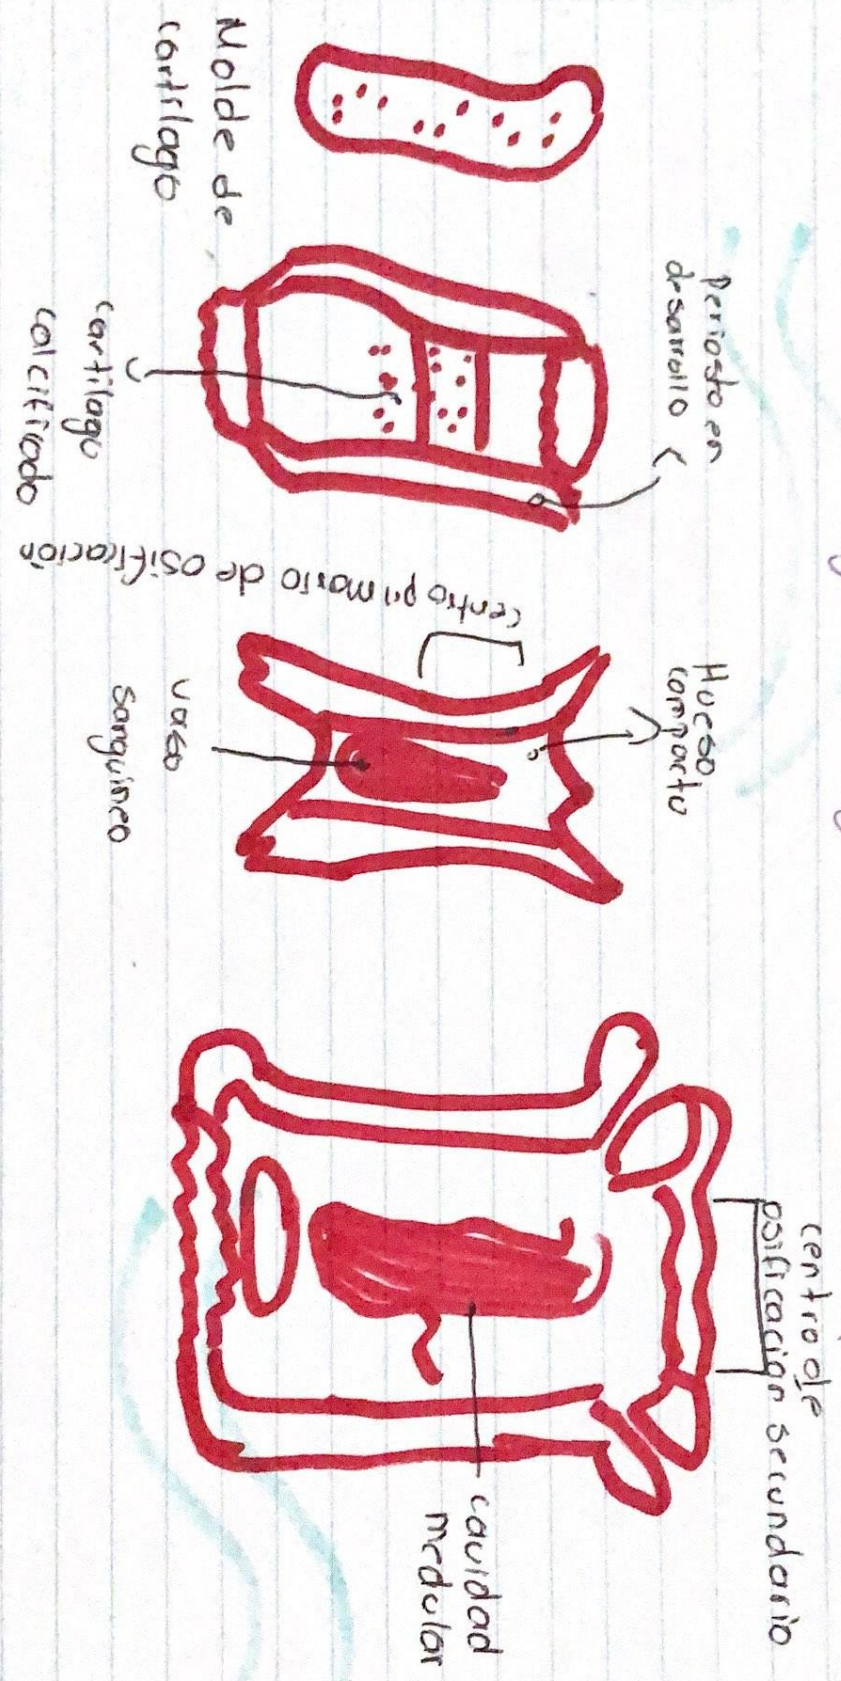 Molde de
cartílago
Periosto en
desarrollo
cartílago
calcificado
centro primario de osificación
Hueso
compacto
vaso
sanguíneo
centro de
osificación secundario
cavidad
medular